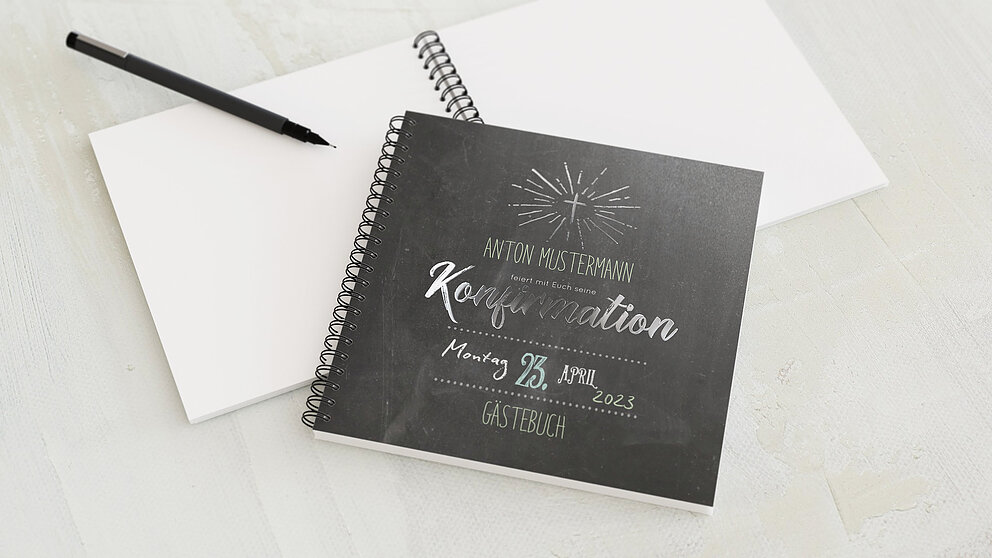 ANTON MUSTERMANN
feiert mit Euch seine
Konfirmation
Montag 23. APRIL
2023
GÄSTEBUCH